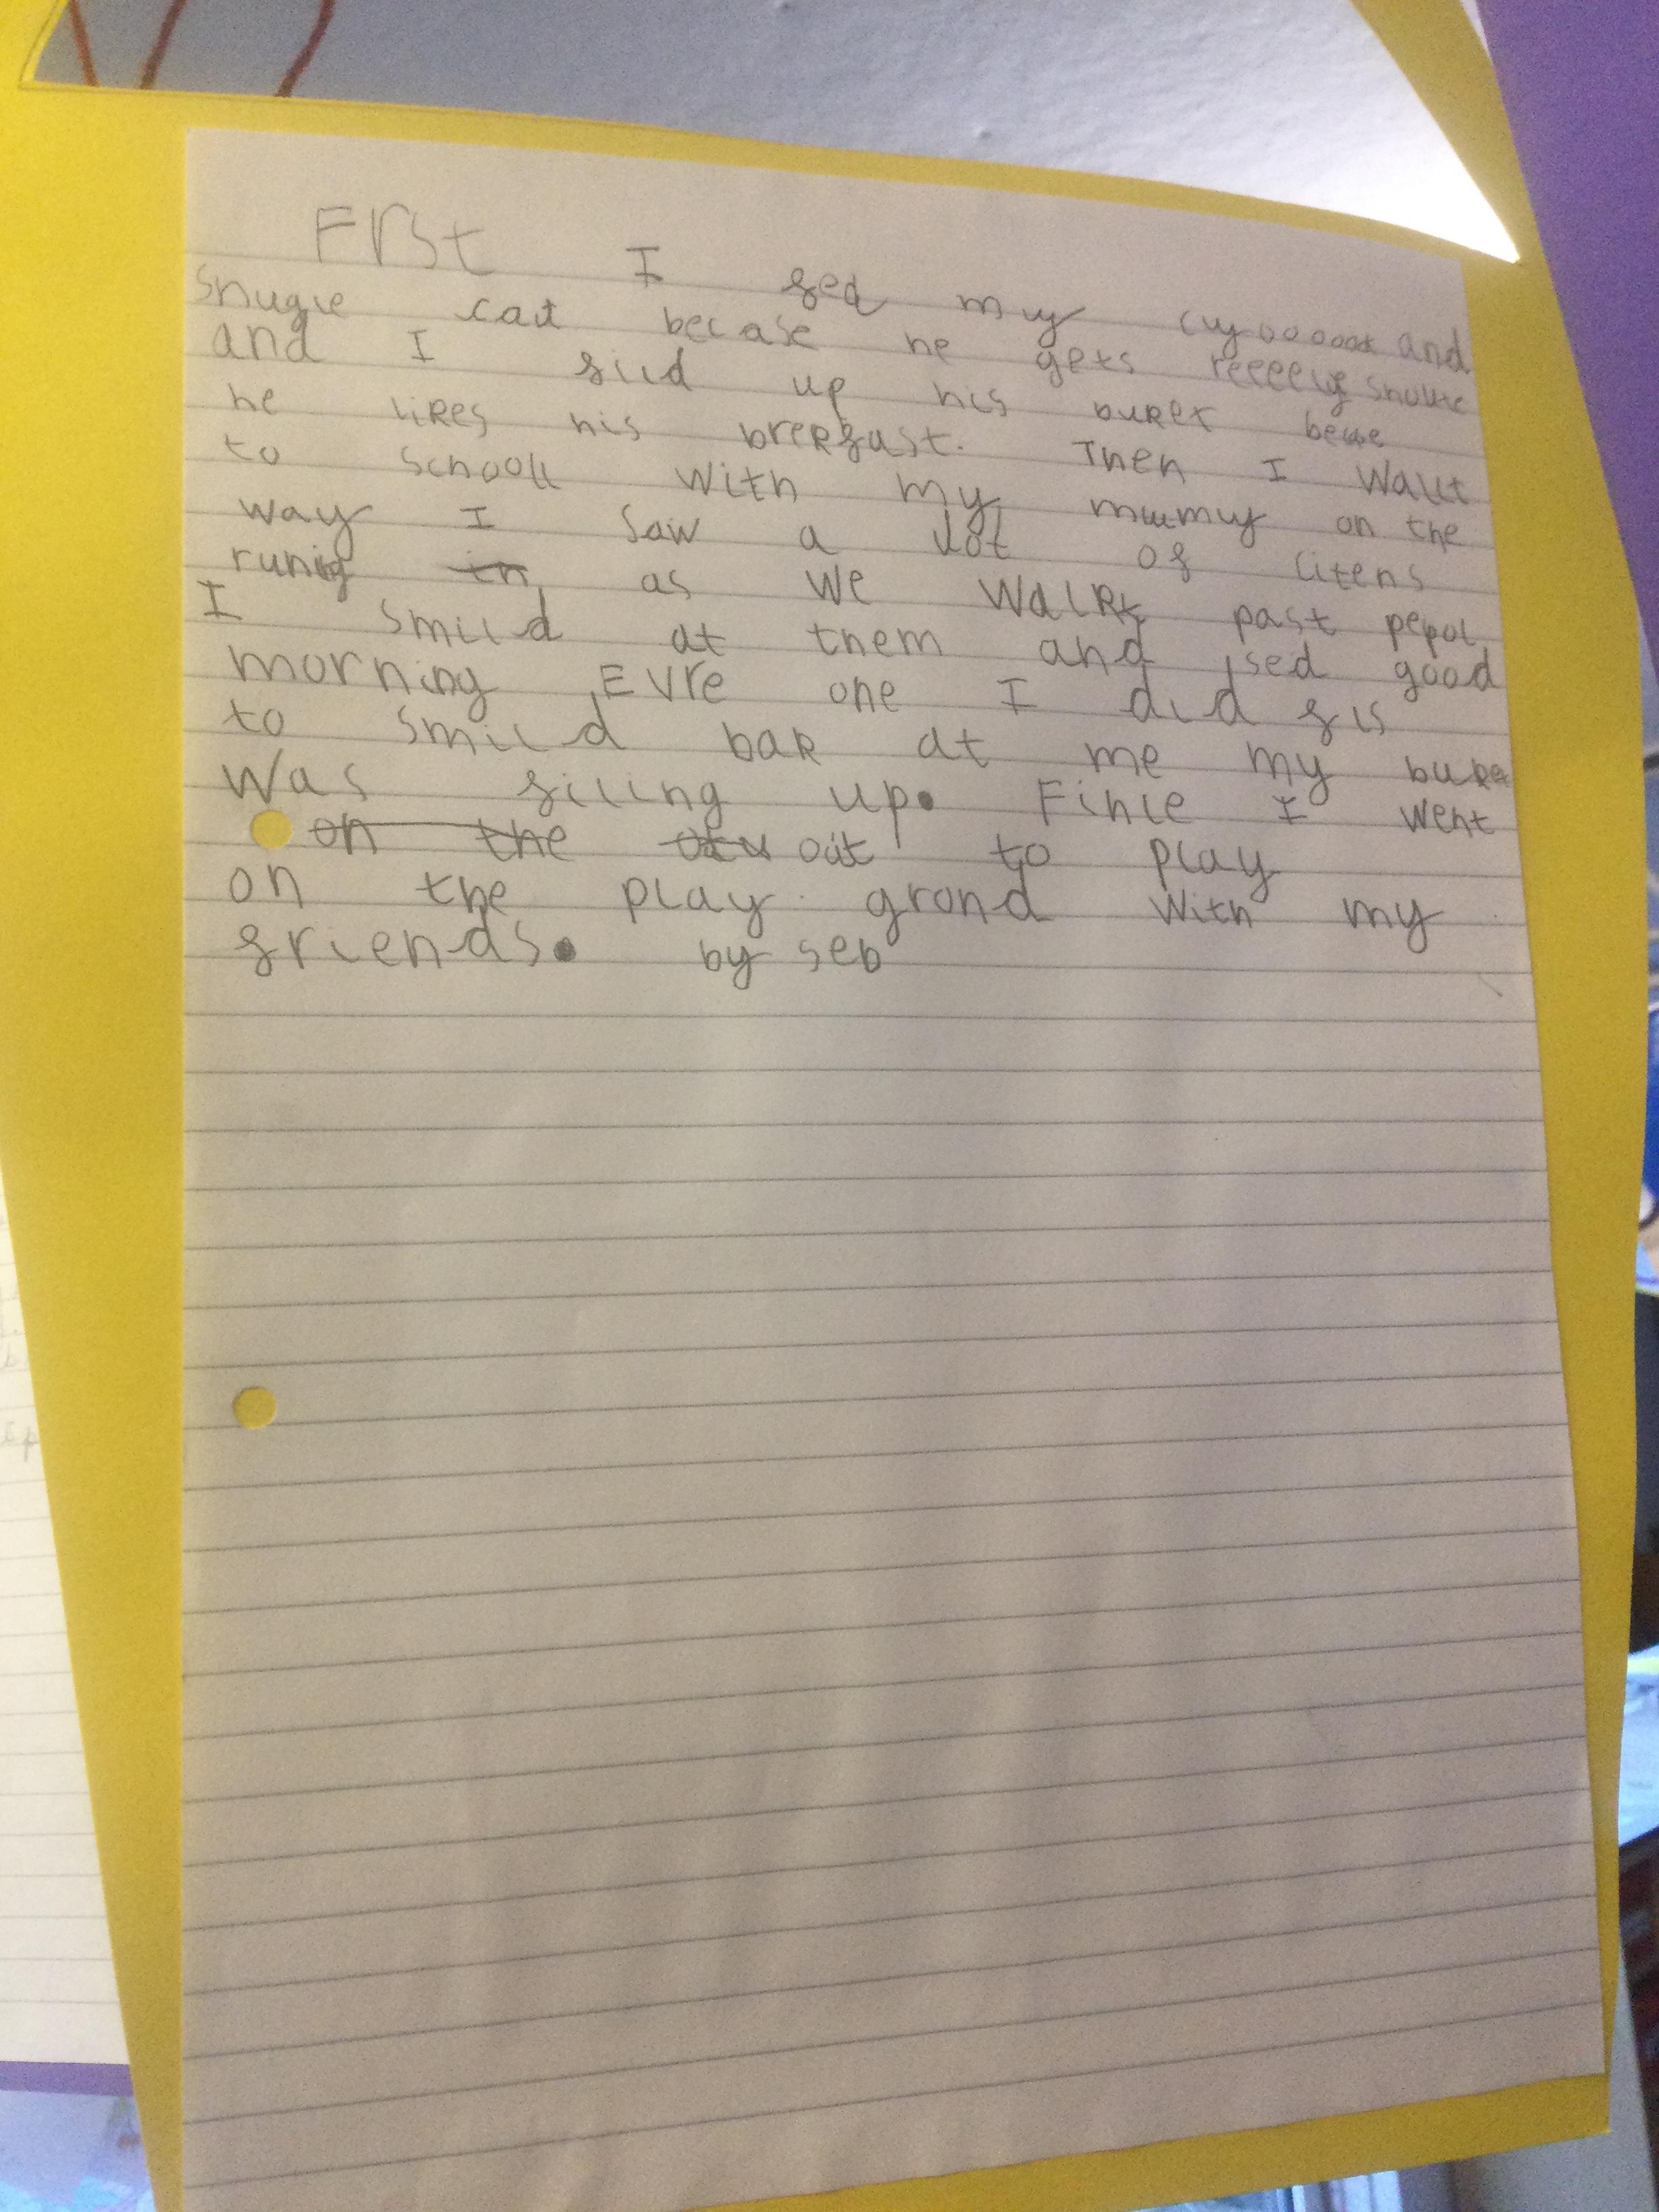 Frst I fed my cuyooooot and
snugle cat becase he gets reeeely
and I fild up his buket
he likes his brekfast. Then I walkt
to schooll with my mummy on the
way I saw a lot of litens
runing in as we walkt past pepol
I smild at them and sed good
morning Evre one I did fis
to smild bak at me my buket
was filing up. Finle I went
on the out to play
on the play grond with my
friends. by seb